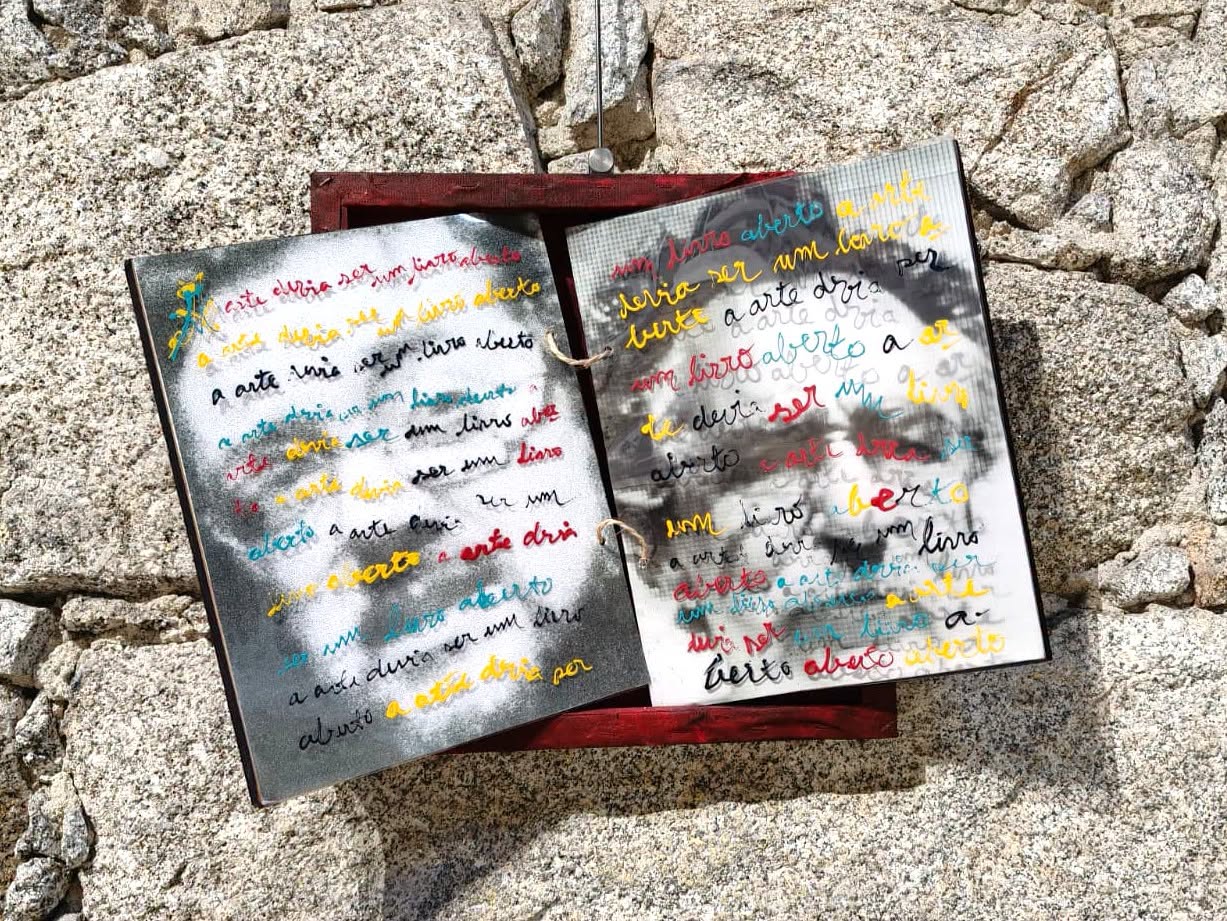 A arte devia ser um livro aberto
a arte devia ser um livro aberto
a arte devia ser um livro aberto
a arte devia ser um livro aberto a
arte devia ser um livro aber
to a arte devia ser um livro
aberto a arte devia ser um
livro aberto a arte devia
ser um livro aberto
a arte devia ser um livro
aberto a arte devia ser
um livro aberto a arte
devia ser um livro a
berto a arte devia ser
um livro aberto a ar
te devia ser um livro
aberto a arte devia ser
um livro aberto
a arte devia ser um livro
aberto a arte devia ser
um livro aberto a arte
devia ser um livro a-
berto aberto aberto